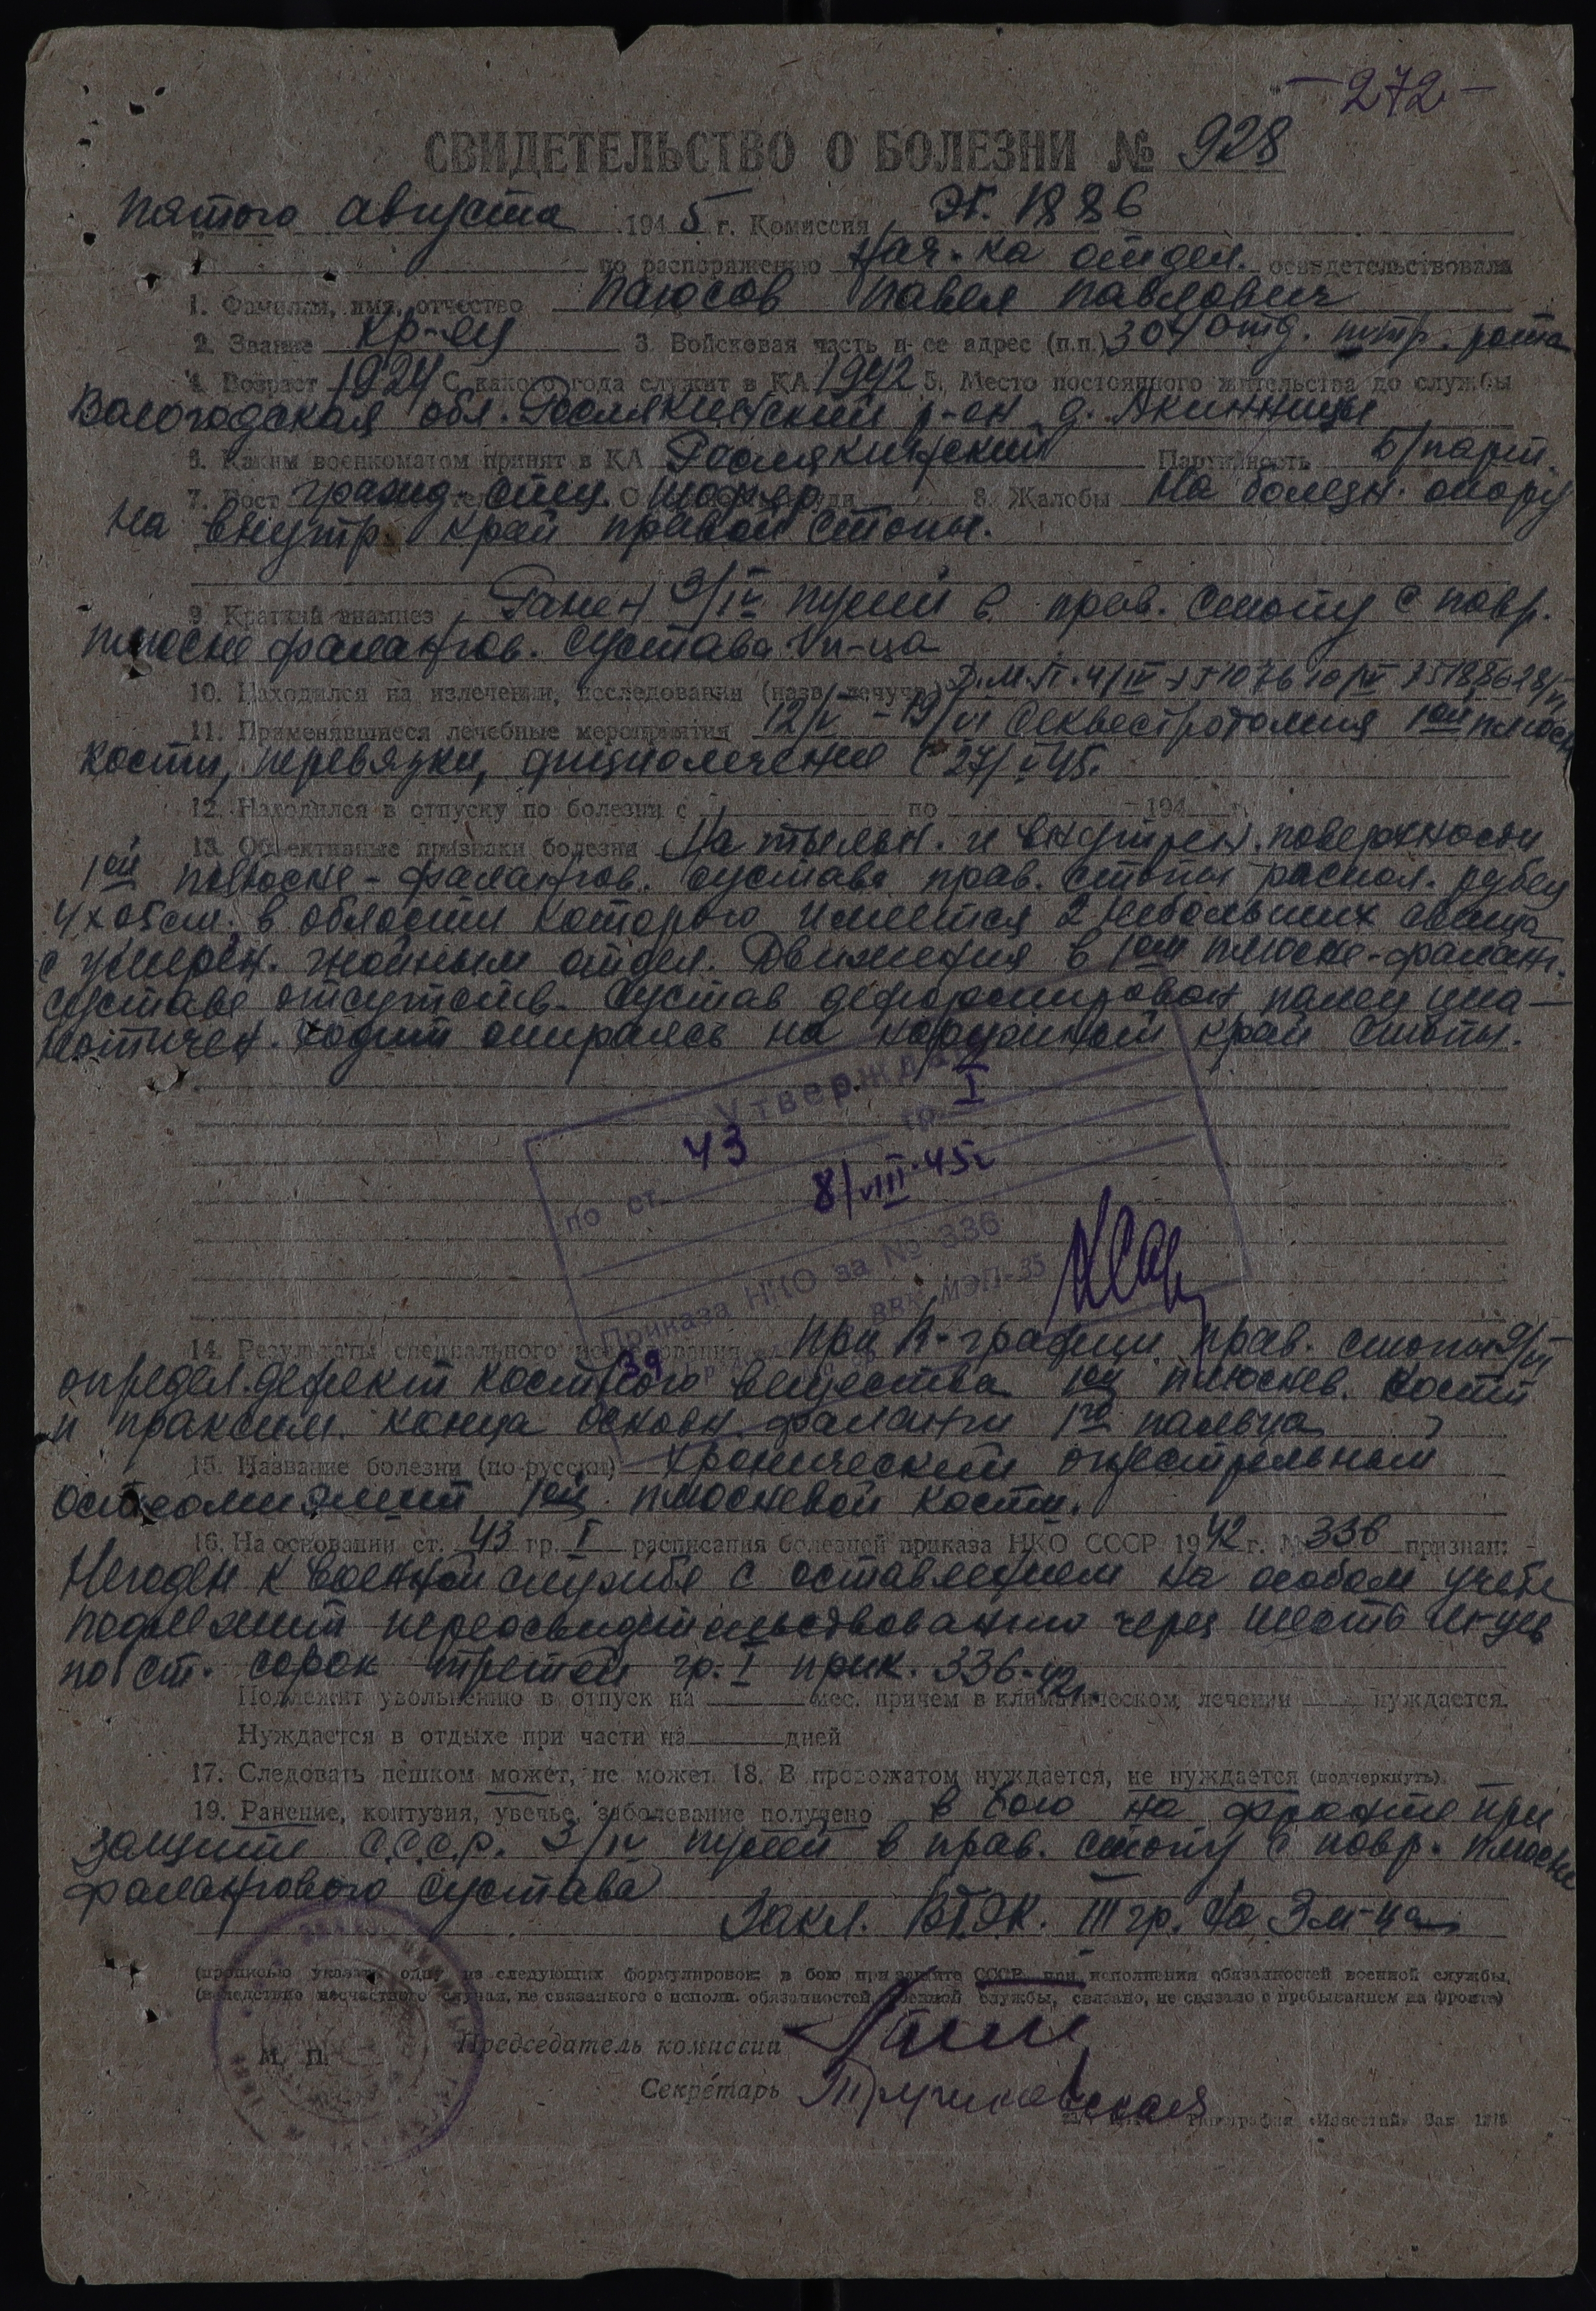 - 272 -
СВИДЕТЕЛЬСТВО О БОЛЕЗНИ № 928
пятого августа 1945 г. Комиссия ЭГ. 1886
по распоряжению Нач-ка отдел. освидетельствовала
1. Фамилия, имя, отчество Паюсов Павел Павлович
2. Звание кр-ец 3. Войсковая часть и ее адрес (п.п.) 304 отд. штр. рота
4. Возраст 1924 С какого года служит в КА 1942 5. Место постоянного жительства до службы
Вологодская обл. р-он д. Акинницы
6. Каким военкоматом принят в КА Партийность Б/парт.
7. Рост гражд. спец. шофер 8. Жалобы На болезн. опору
на внутр. край правой стопы.
9. Краткий анамнез Ранен 3/IV пулей в прав. стопу с повр.
плюсне фалангов. сустава п-ца
10. Находился на излечении, исследовании (назв. лечучр.)
11. Применявшиеся лечебные мероприятия 12/V - 19/VI Секвестротомия 1ой плюсн
кости, перевязки, физиолечение с 27/V 45.
12. Находился в отпуску по болезни с по 194 г.
13. Объективные признаки болезни На тыльн. и внутрен. поверхности
1ой плюсне-фалангов. сустава прав. стопы распол. рубец
4х05см. в области которого имеется 2 небольших свища
с умерен. гнойным отдел. Движения в 1ом плюсне-фаланг.
суставе отсутств. Сустав деформирован палец
Ходит опираясь на наружный край стопы.
Утверждаю
по ст. 43 гр. I
8/VIII-45г
Приказа НКО за № 336
ВВК МЭП-35
14. Результаты специального исследования При R-графии прав. стопы 9/VI
определ. дефект костного вещества 1ой плюснев. кости
и проксим. конца основн. фаланги 1го пальца
15. Название болезни (по-русски) Хронический огнестрельный
остеомиэлит 1ой плюсневой кости.
16. На основании ст. 43 гр. I расписания болезней приказа НКО СССР 1942 г. № 336 признан:
Негоден к военной службе с оставлением на особом учете
подлежит переосвидетельствованию через шесть м-цев
по ст. сорок третьей гр. I прик. 336-42г.
Подлежит увольнению в отпуск на мес. причем в климатическом лечении нуждается.
Нуждается в отдыхе при части на дней
17. Следовать пешком может, не может. 18. В провожатом нуждается, не нуждается (подчеркнуть).
19. Ранение, контузия, увечье, заболевание получено в бою на фронте при
защите С.С.С.Р. 3/IV пулей в прав. стопу с повр. плюсне
фалангового сустава
Закл. ВТЭК. III гр. на 3 м-ца
(прописью указать одну из следующих формулировок: в бою при защите СССР, при исполнении обязанностей военной службы,
(вследствие несчастного случая, не связанного с исполн. обязанностей военной службы, связано, не связано с пребыванием на фронте)
М. П. Председатель комиссии
Секретарь
Типография «Известий» Зак